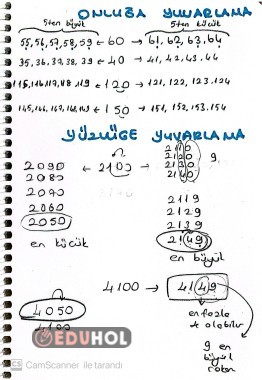 ONLUĞA YUVARLAMA
5ten büyük 5ten küçük
55,56,57,58,59 ← 60 → 61, 62, 63, 64
35,36,37,38,39 ← 40 → 41, 42, 43, 44
115,116,117,118,119 ← 120 → 121, 122, 123, 124
145,146,147,148,149 ← 150 → 151, 152, 153, 154
YÜZLÜĞE YUVARLAMA
2090 ← 2100 → 2110
2080 2120
2070 2130
2060 2140
2050
9
2119
2129
2139
2149
en küçük en büyük
4100 → 4149
4050
en fazla 4 olabilir
9 en büyük rakam
EDUHOL
CS CamScanner ile tarandı